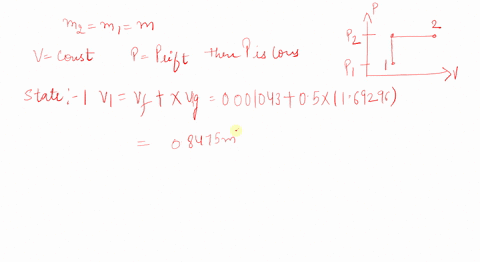 m₂ = m₁ = m
V = Const P = Plift then P is Cons
State :- 1 V₁ = Vf + x Vg = 0.001043 + 0.5 x (1.69296)
= 0.8475 m
P
P₂
P₁
1
2
V